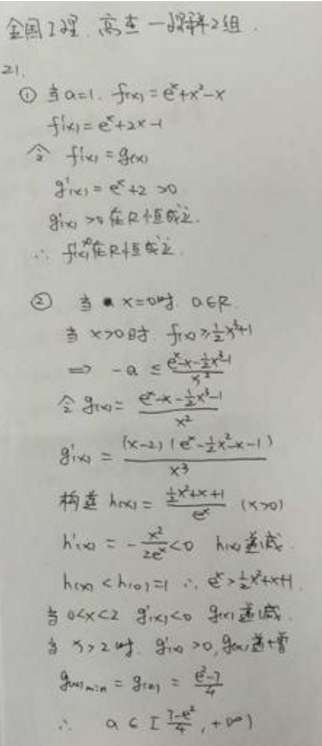 全国I理. 高杰一课群2组.
21.
① 当a=1. f(x)=eˣ+x²-x
f'(x)=eˣ+2x-1
令 f'(x)=g(x)
g'(x)=eˣ+2>0
g'(x)>0 在R恒成立.
∴ f'(x) 在R恒成立.
② 当 x=0时. a∈R.
当 x>0时 f(x)≥½x³+1
⇒ -a ≤ (eˣ-x-½x³-1)/x²
令 g(x)= (eˣ-x-½x³-1)/x²
g'(x) = (x-2)(eˣ-½x²-x-1)/x³
构造 h(x)= (½x²+x+1)/eˣ (x>0)
h'(x) = -x²/2eˣ<0 h(x)递减.
h(x)<h(0)=1 ∴ eˣ>½x²+x+1
当 0<x<2 g'(x)<0 g(x)递减.
当 x>2时. g'(x)>0, g(x)递增
g(x)min = g(2) = (e²-7)/4
∴ a∈[(7-e²)/4, +∞)